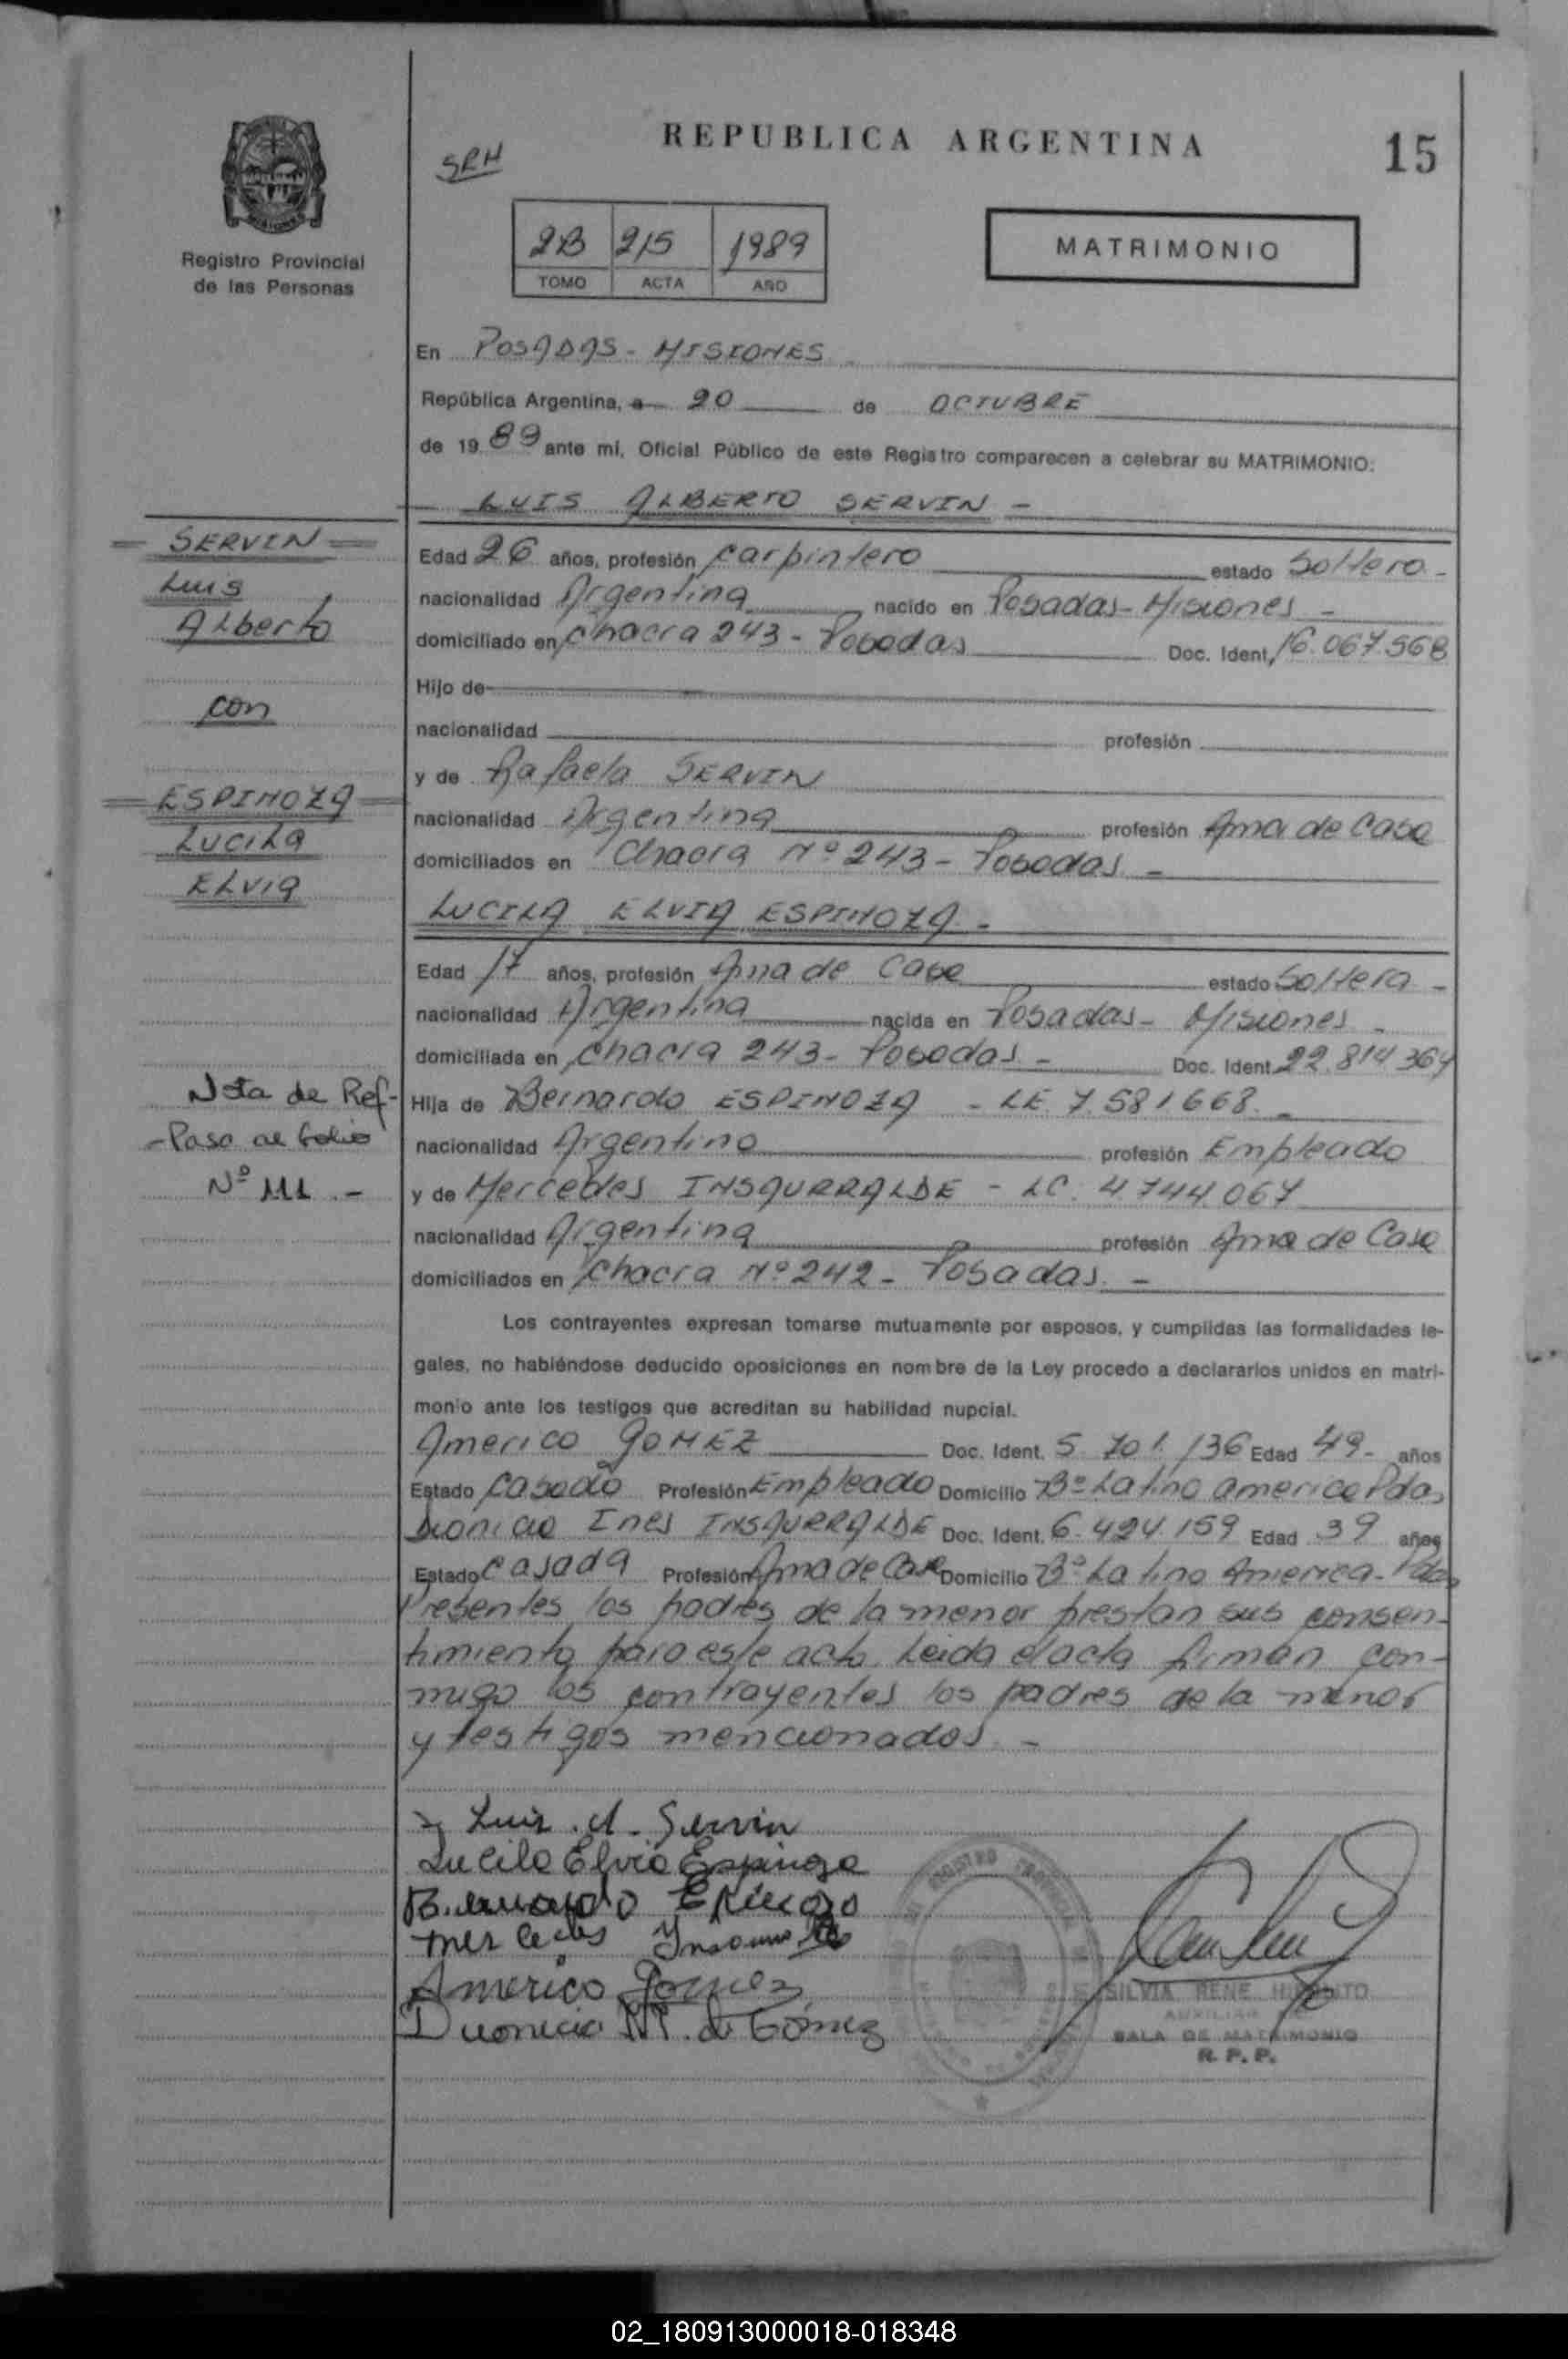 REPUBLICA ARGENTINA
15
SRH
2B 215 1989
TOMO ACTA AÑO
MATRIMONIO
Registro Provincial
de las Personas
En POSADAS - MISIONES
República Argentina, a 20 de OCTUBRE
de 1989 ante mi, Oficial Público de este Registro comparecen a celebrar su MATRIMONIO:
LUIS ALBERTO SERVIN -
SERVIN
Luis
Alberto
con
ESPINOZA
LUCILA
ELVIA
Edad 26 años, profesión Carpintero estado Soltero -
nacionalidad Argentina nacido en Posadas - Misiones -
domiciliado en Chacra 243 - Posadas Doc. Ident. 16.067.568
Hijo de
nacionalidad profesión
y de Rafaela SERVIN
nacionalidad Argentina profesión Ama de Casa
domiciliados en Chacra Nº 243 - Posadas. -
LUCILA ELVIA ESPINOZA -
Edad 17 años, profesión Ama de Casa estado Soltera -
nacionalidad Argentina nacida en Posadas - Misiones -
domiciliada en Chacra 243 - Posadas - Doc. Ident. 22.814.364
Hija de Bernardo ESPINOZA - LE 7.581.668. -
nacionalidad Argentino profesión Empleado
y de Mercedes INSAURRALDE - LC. 4.744.067
nacionalidad Argentina profesión Ama de Casa
domiciliados en Chacra Nº 242 - Posadas. -
Nota de Ref-
- Pasa al folio
Nº 111 . -
Los contrayentes expresan tomarse mutuamente por esposos, y cumplidas las formalidades le-
gales, no habiéndose deducido oposiciones en nombre de la Ley procedo a declararlos unidos en matri-
monio ante los testigos que acreditan su habilidad nupcial.
Americo GOMEZ Doc. Ident. 5.701.136 Edad 49 - años
Estado Casado Profesión Empleado Domicilio Bº Latino america Pdas
Dionicia Ines INSAURRALDE Doc. Ident. 6.424.159 Edad 39 años
Estado Casada Profesión Ama de Casa Domicilio Bº Latino America - Pdas
Presentes los padres de la menor prestan sus consen-
timiento para este acto. Leida el acta firman con-
migo los contrayentes los padres de la menor
y testigos mencionados. -
Luis . A. Servin
Lucila Elvia Espinoza
Bernardo Espinoza
Mercedes
Americo Gomez
Dionicia de Gómez
SILVIA RENE
AUXILIAR
SALA DE MATRIMONIO
R. P. P.
02_180913000018-018348